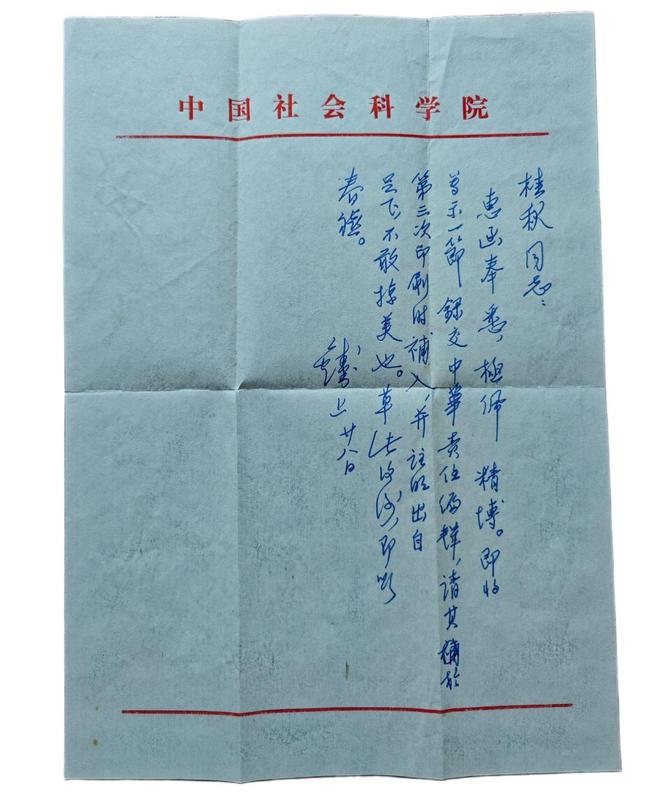 中国社会科学院
桂秋同志：
惠函奉悉，极佩精博。即将
尊示一节録交中華责任编辑，请其補於
第三次印刷时補入，并註明出自
足下，不敢掠美也。草此復谢，即颂
春禧。
钱 上 廿八日